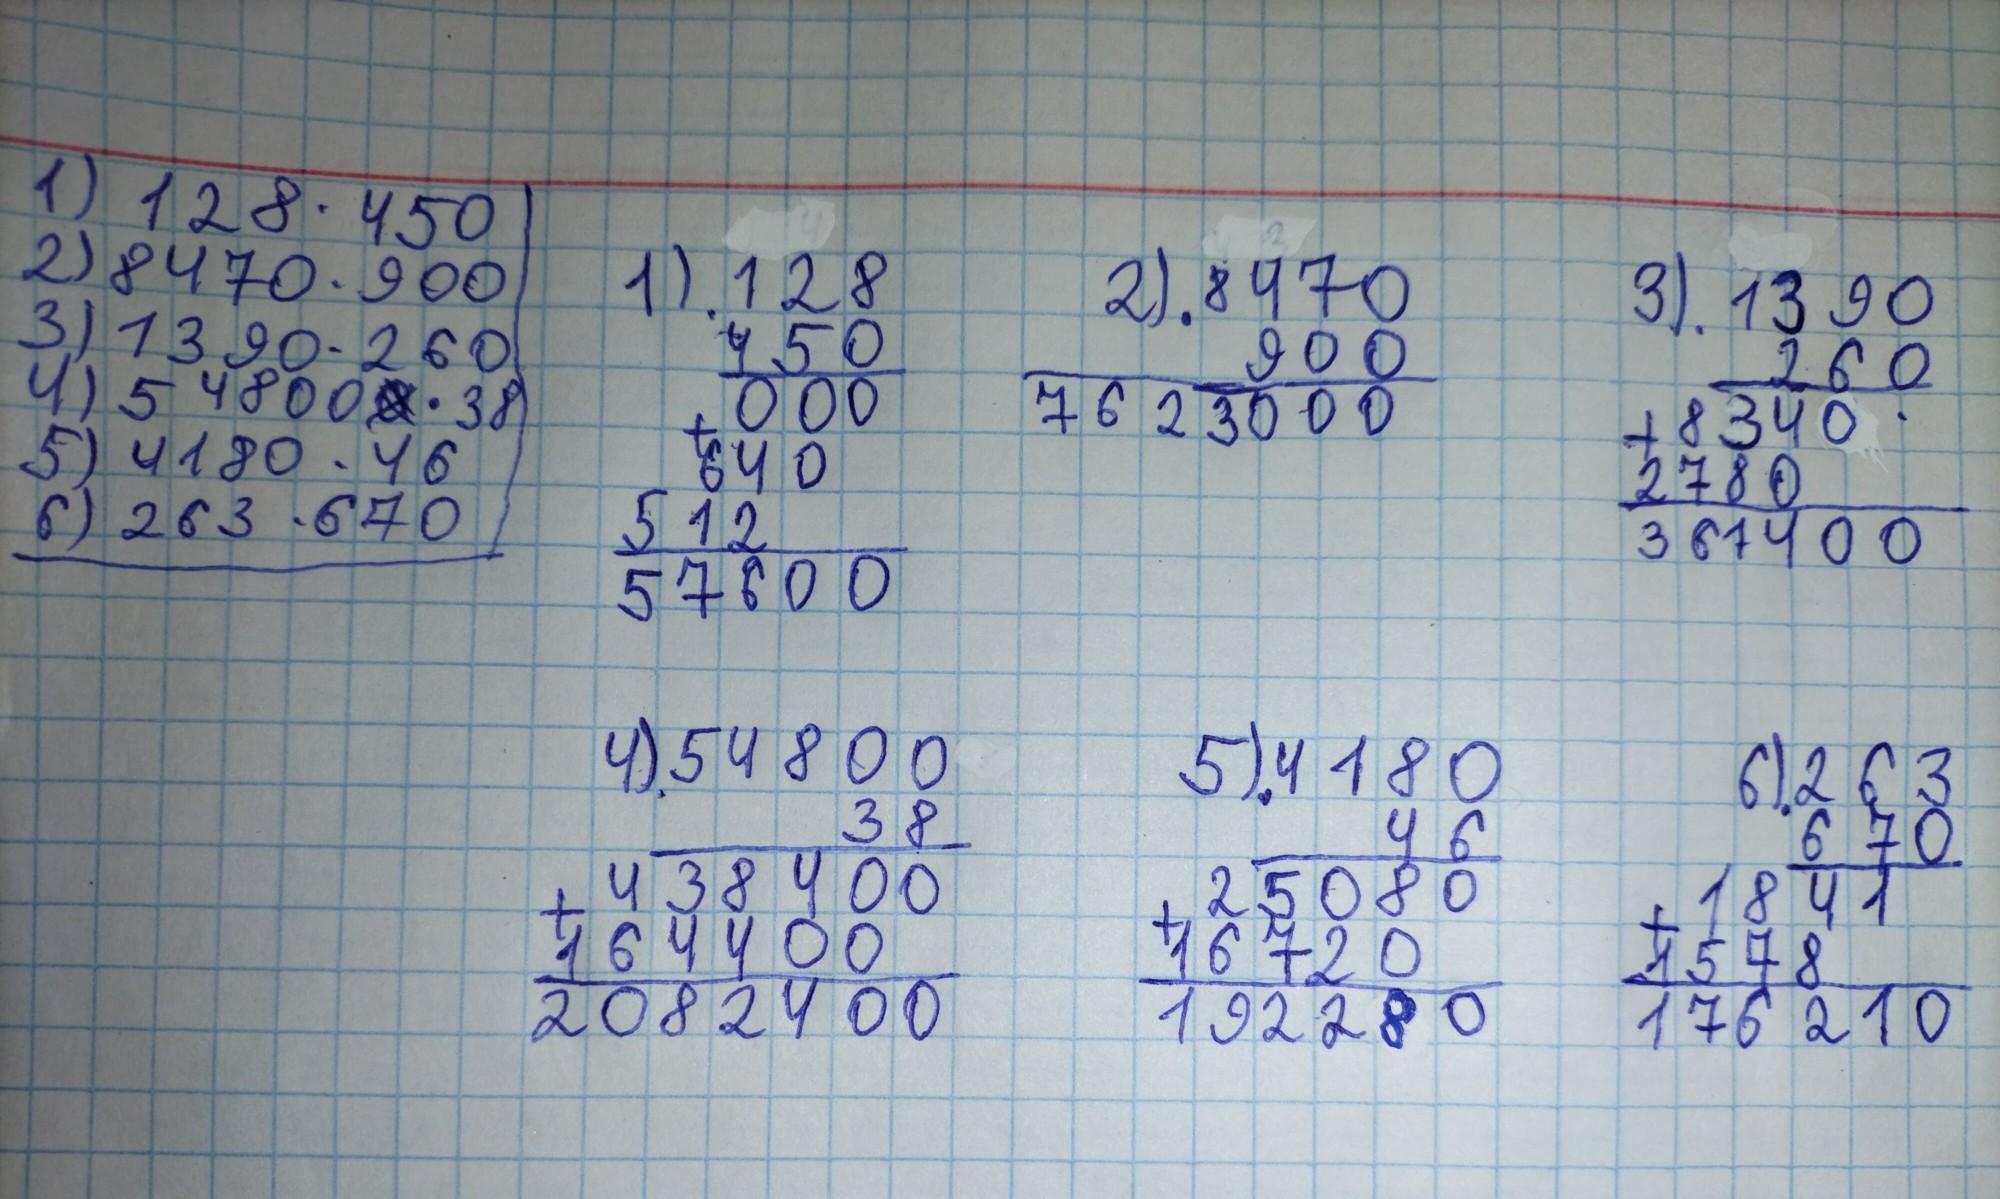 1) 128 · 450
2) 8470 · 900
3) 1390 · 260
4) 54800 · 38
5) 4180 · 46
6) 263 · 670
1). 128
450
000
+
640
512
57600
2). 8470
900
7623000
3). 1390
260
+ 8340
2780
361400
4). 54800
38
438400
+
164400
2082400
5). 4180
46
25080
+
16720
192280
6). 263
670
1841
+
1578
176210